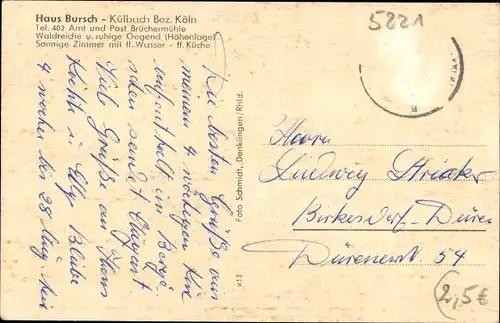 Haus Bursch - Külbach Bez. Köln
Tel. 402 Amt und Post Brüchermühle
Waldreiche u. ruhige Gegend (Höhenlage)
Sonnige Zimmer mit fl. Wasser - ff. Küche
5221
Die besten Grüße von
meinem 4 wöchigen Kur
aufenthalt im Bergi
schen sendet
Viel Grüße an Hans
Käthe u. Elly Bleibe
4 wochen bis 28 Aug. hier
Foto Schmidt, Denklingen/Rhld.
x13
Herrn
Ludwig Strieker
Birkesdorf-Düren
Dürenerstr. 54
2,5€